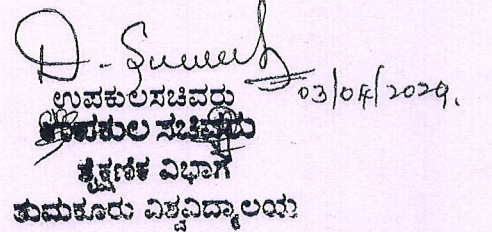 D. Suresh
03/04/2024.
ಉಪಕುಲಸಚಿವರು
ಉಪಕುಲ ಸಚಿವರು
ಶೈಕ್ಷಣಿಕ ವಿಭಾಗ
ತುಮಕೂರು ವಿಶ್ವವಿದ್ಯಾಲಯ